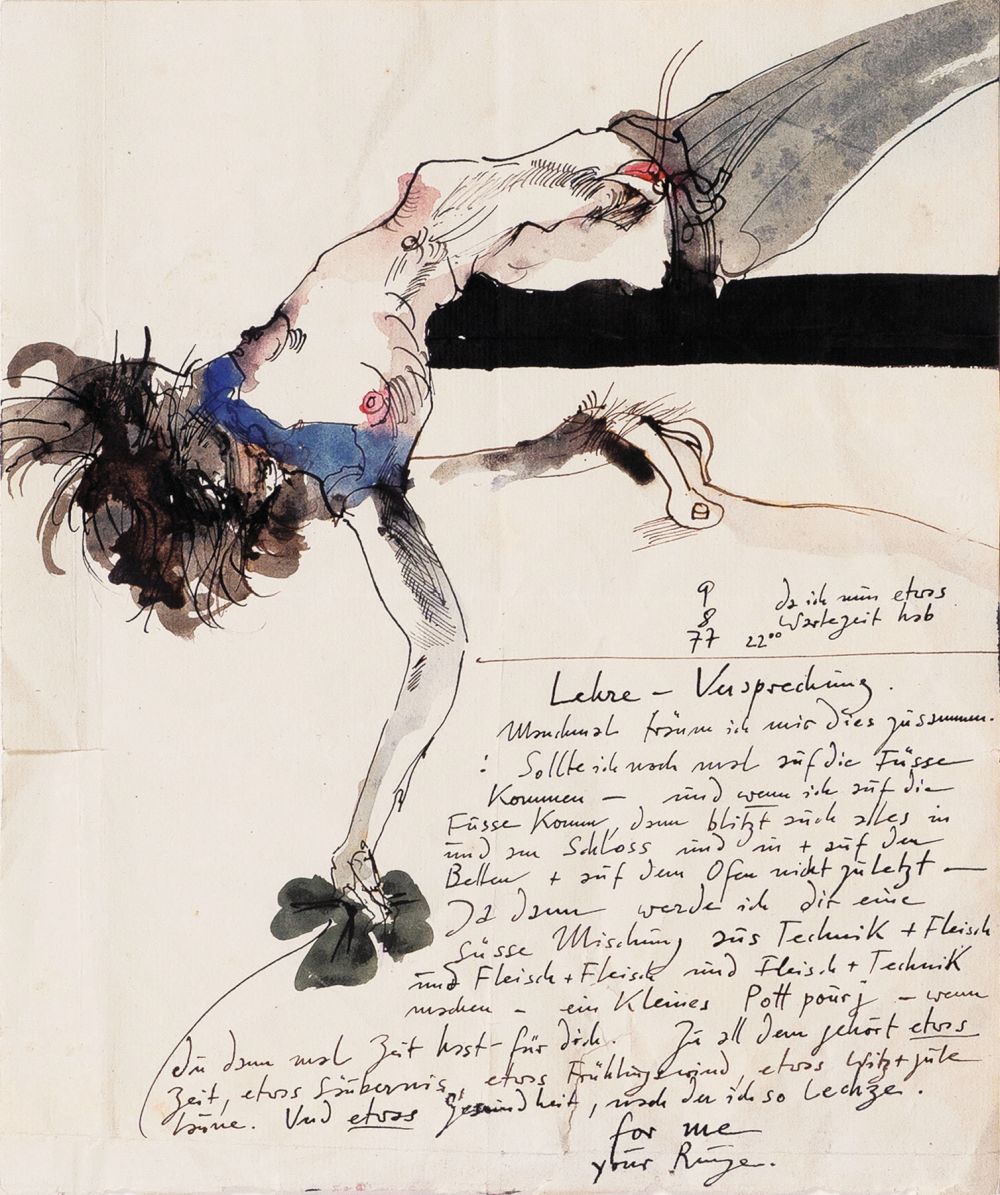 9
8
77 22⁰⁰
da ich nun etwas
Wartezeit hab
Lehre – Versprechung.
Manchmal träum ich mir dies zusammen.
: Sollte ich noch mal auf die Füsse
Kommen – und wenn ich auf die
Füsse Komm, dann blitzt auch alles in
und am Schloss und in + auf den
Betten + auf dem Ofen nicht zuletzt –
Ja dann werde ich dir eine
süsse Mischung aus Technik + Fleisch
und Fleisch + Fleisch und Fleisch + Technik
machen – ein Kleines Pott pourj – wenn
du dann mal Zeit hast – für dich. Zu all dem gehört etwas
Zeit, etwas Säubernis, etwas Frühlingswind, etwas Witz + gute
Laune. Und etwas Gesundheit, nach der ich so lechze.
for me
your Runge.